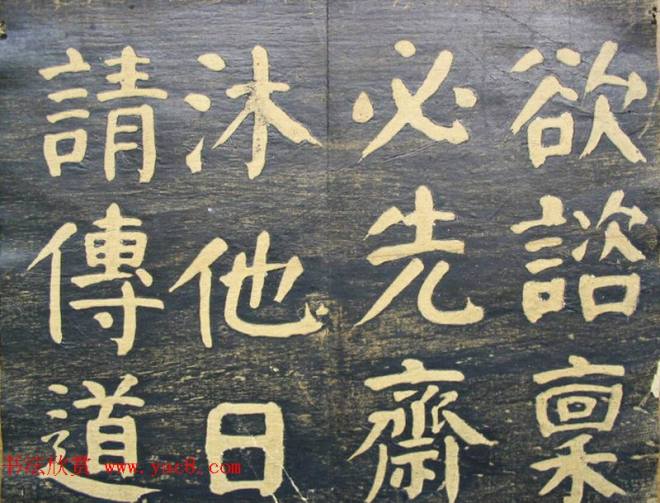 欲諮稟
必先齋
沐他日
請傳道
书法欣赏 www.yac8.com